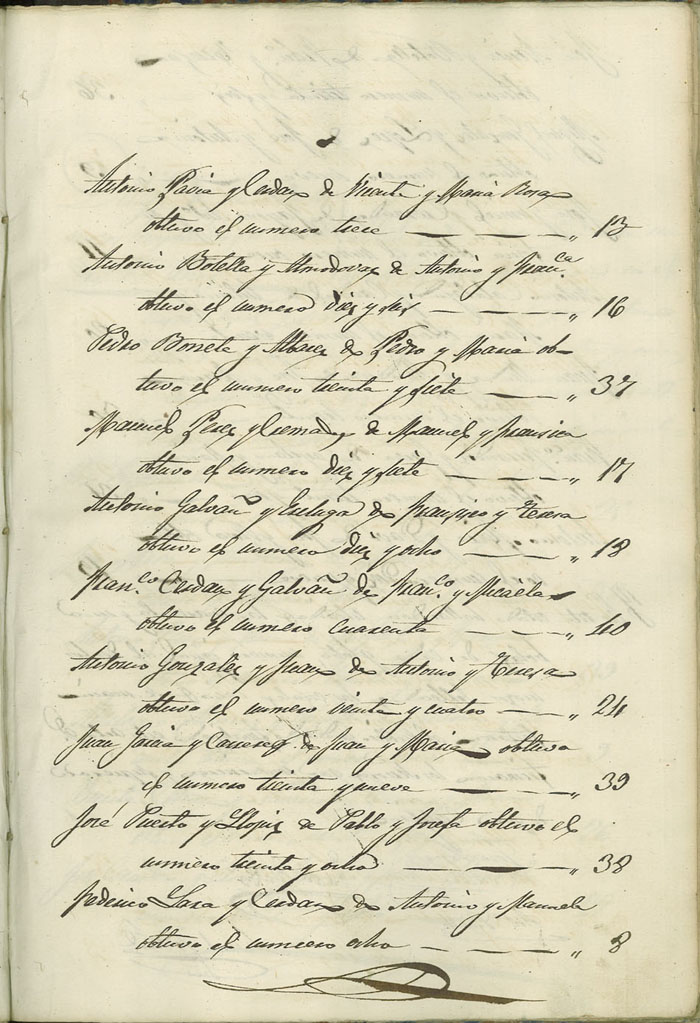 Antonio Pavia y Cerdan de Vicente y Maria Rosa
obtuvo el numero trece — — — „ 13
Antonio Botella y Almodovar de Antonio y Fran.ca
obtuvo el numero diez y seis — — — „ 16
Pedro Bonete y Albarez de Pedro y Maria ob-
tuvo el numero treinta y siete — — „ 37
Manuel Perez y de Manuel y Francisca
obtuvo el numero diez y siete — — — „ 17
Antonio Galvañ y de Francisco y Teresa
obtuvo el numero diez y ocho — — „ 18
Fran.co Cerdan y Galvañ de Fran.co y Micaela
obtuvo el numero cuarenta — — — „ 40
Antonio Gonzalez y Juan de Antonio y Teresa
obtuvo el numero veinte y cuatro — — „ 24
Juan Garcia y Carreres de Juan y Maria obtuvo
el numero treinta y nueve — — — „ 39
José Puerto y Llopiz de Pablo y Josefa obtuvo el
numero treinta y ocho — — — „ 38
Federico Lara y Cerdan de Antonio y Manuela
obtuvo el numero ocho — — — „ 8